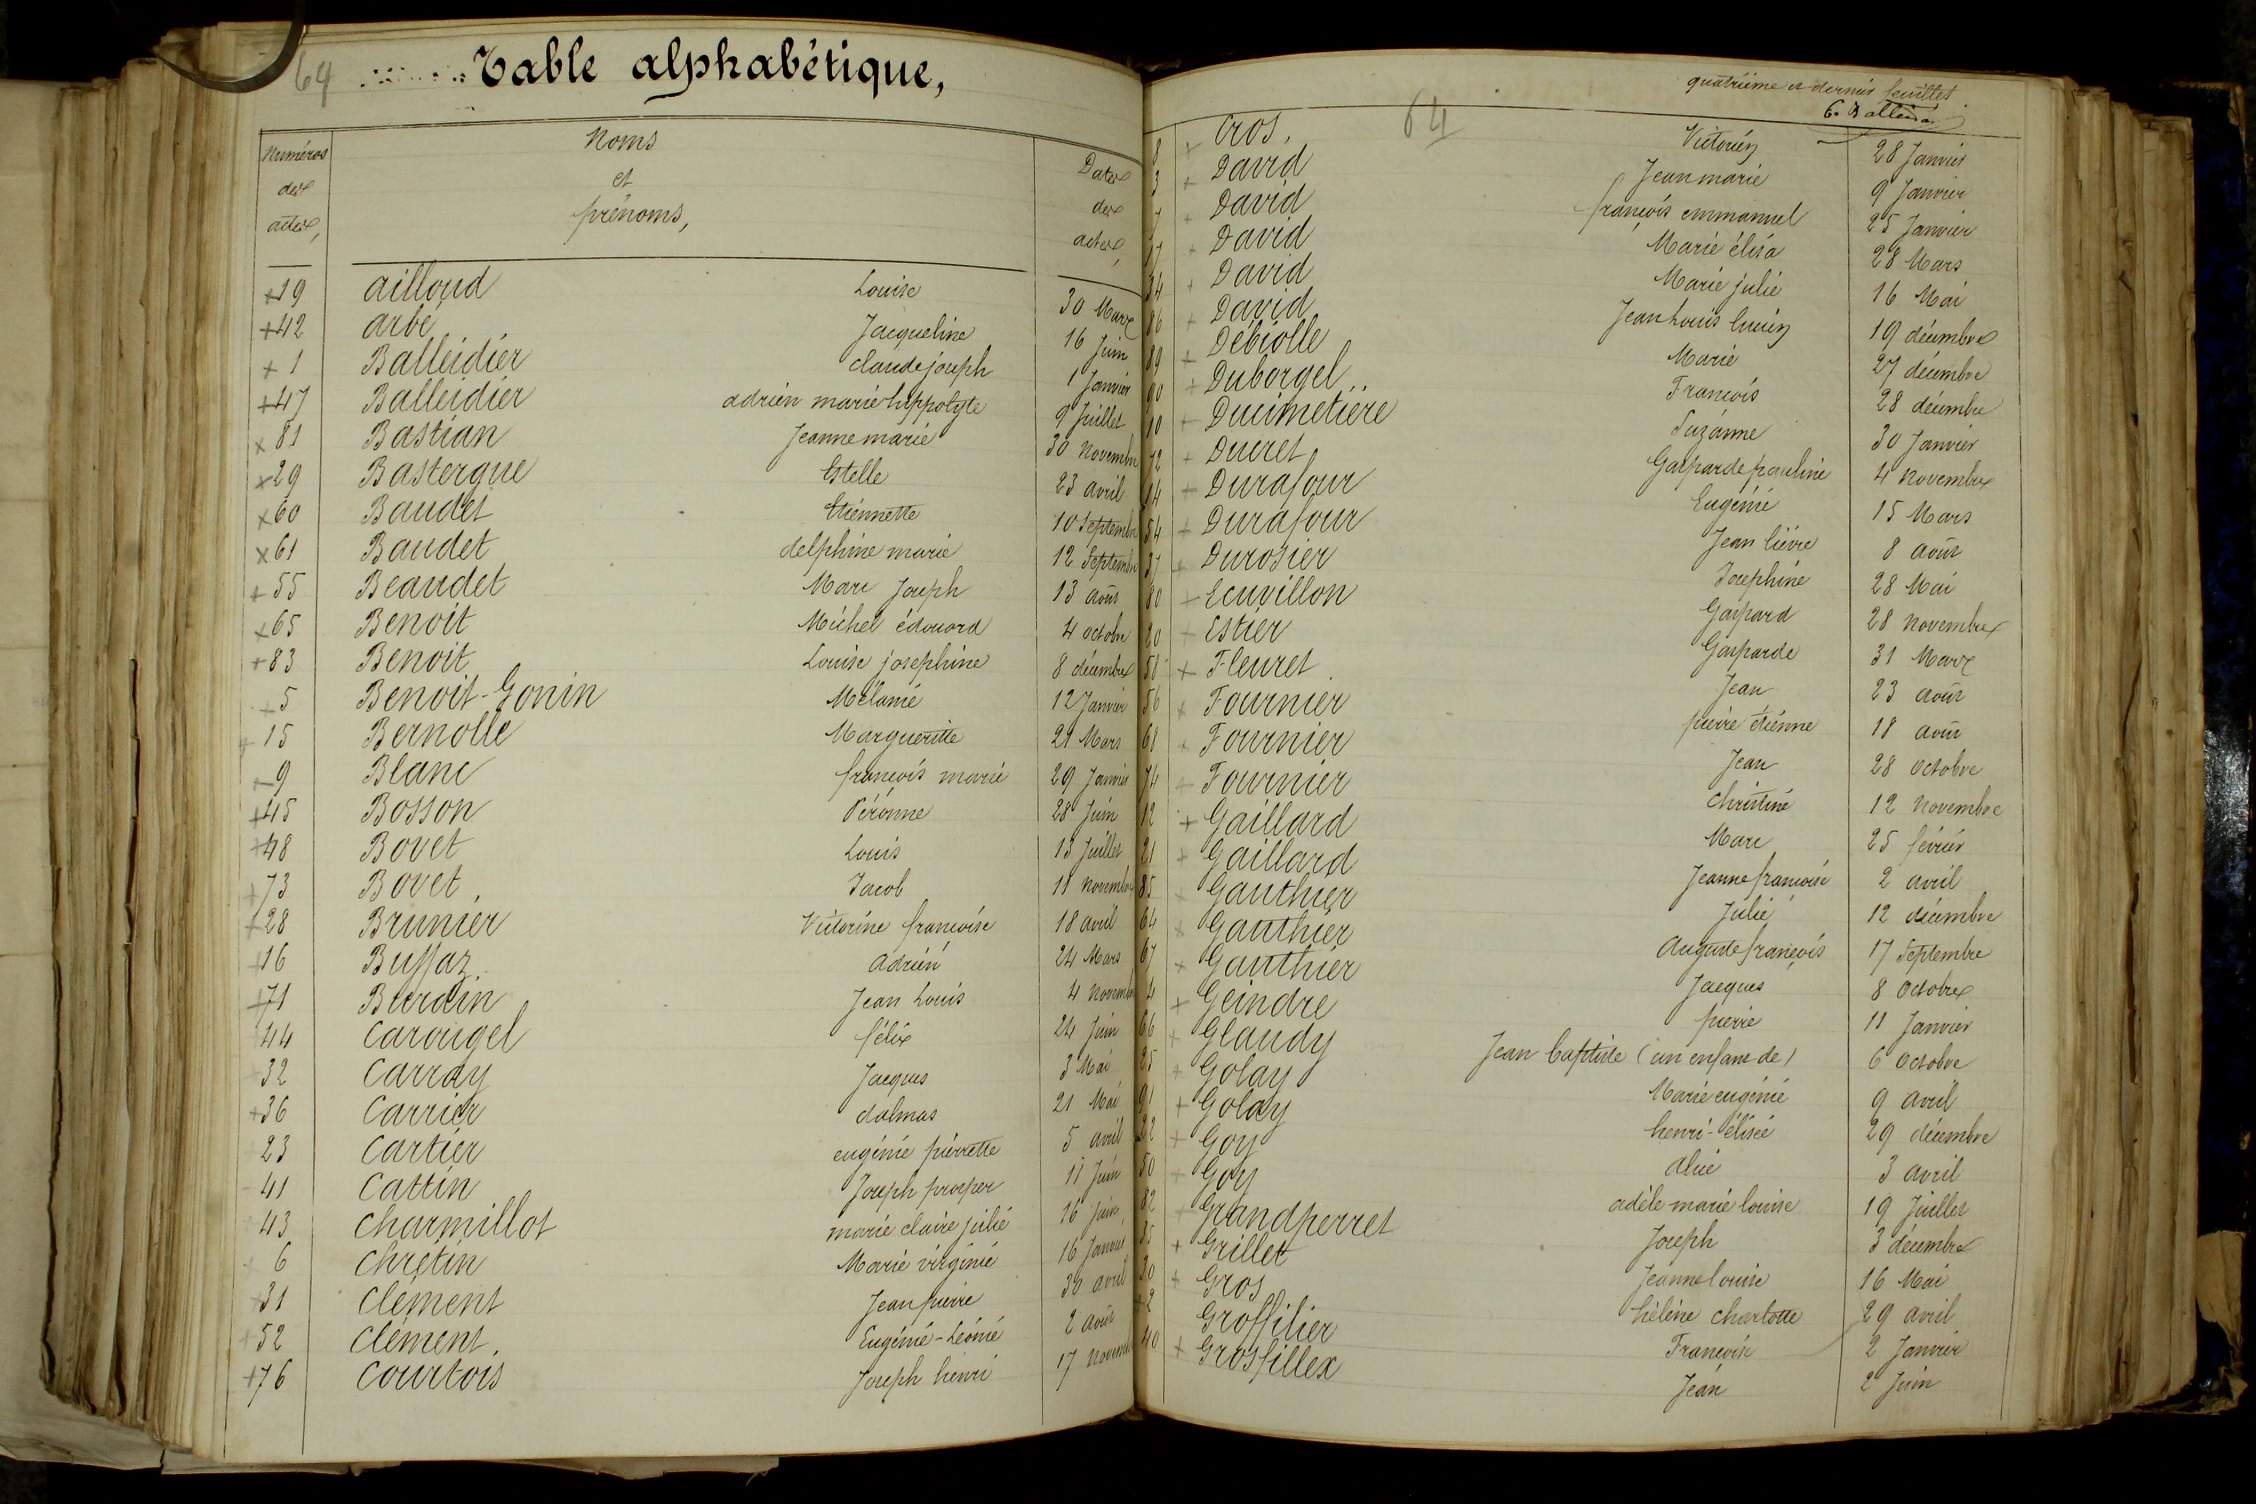 64
Table alphabétique,
Numéros des actes,
Noms et prénoms,
Dates des actes,
+19 Ailloud Louise 30 Mars
+42 Arbé Jacqueline 16 Juin
+ 1 Balleidier Claude joseph 1 Janvier
+47 Balleidier adrien marie hippolyte 9 Juillet
x 81 Bastian Jeanne marie 30 Novembre
x29 Bastergue Estelle 23 avril
x60 Baudet Etiennette 10 Septembre
x61 Baudet delphine marie 12 Septembre
+55 Beaudet Marc Joseph 13 août
x65 Benoit Michel édouard 4 octobre
+83 Benoit Louise josephine 8 décembre
+5 Benoit-Gonin Mélanie 12 Janvier
+15 Bernolle Marguerite 21 Mars
+9 Blanc françois marie 29 Janvier
+45 Bosson Péronne 28 Juin
+48 Bovet Louis 13 Juillet
+73 Bovet Jacob 11 Novembre
+28 Brunier Victorine françoise 18 avril
+16 Buffaz Adrien 24 Mars
+71 Burdin Jean Louis 4 Novembre
44 Carougel félix 24 Juin
32 Carray Jacques 3 Mai
+36 Carrier dalmas 21 Mai
23 Cartier eugénie pierrette 5 avril
41 Cattin Joseph prosper 11 Juin
43 Charmillot marie claire julie 16 Juin
6 Chrétin Marie virginie 16 Janvier
+31 Clément Jean pierre 30 avril
+52 Clément Eugénie-Léonie 2 août
+76 Courtois Joseph henri 17 Novembre
quatrième et dernier feuillet
64
8 + Cros, Victorien 28 Janvier
3 + David Jean marie 9 Janvier
7 + David françois emmanuel 25 Janvier
17 + David Marie élisa 28 Mars
34 + David Marie julie 16 Mai
86 + David Jean Louis lucien 19 décembre
89 + Débiolle Marie 27 décembre
90 + Duborgel François 28 décembre
10 + Ducimetière Suzanne 30 Janvier
72 + Ducret Gasparde pauline 4 Novembre
14 + Durafour Eugénie 15 Mars
54 + Durafour Jean lièvre 8 août
37 + Durosier Josephine 28 Mai
80 + Ecuvillon Gaspard 28 Novembre
20 + Estier Gasparde 31 Mars
58 + Fleuret Jean 23 août
56 + Fournier pierre étienne 18 août
68 + Fournier Jean 28 Octobre
74 + Fournier Christine 12 Novembre
12 + Gaillard Marc 25 février
21 + Gaillard Jeanne françoise 2 avril
85 + Gauthier Julie 12 décembre
64 + Gauthier Auguste françois 17 Septembre
67 + Gauthier Jacques 8 Octobre
4 + Geindre pierre 11 Janvier
66 + Glaudy Jean baptiste (un enfant de) 6 Octobre
25 + Golay Marie eugénie 9 avril
91 + Golay henri-élisée 29 décembre
22 + Goy Alice 3 avril
50 + Goy adèle marie louise 19 Juillet
82 + Grandperret Joseph 3 décembre
35 + Grillet Jeanne louise 16 Mai
30 + Gros hélène charlotte 29 avril
+ 2 Groffilier François 2 Janvier
40 + Grosfillex Jean 2 Juin